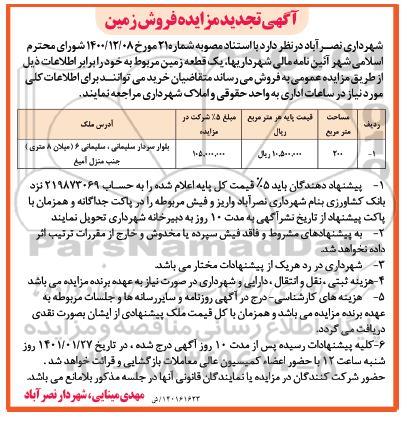 آگهی تجدید مزایده فروش زمین
شهرداری نصرآباد در نظر دارد با استناد مصوبه شماره ۲۱ مورخ ۱۴۰۰/۱۲/۰۸ شورای محترم
اسلامی شهر آئین نامه مالی شهرداریها، یک قطعه زمین مربوط به خود را برابر اطلاعات ذیل
از طریق مزایده عمومی به فروش می رساند متقاضیان خرید می توانند برای اطلاعات کلی
مورد نیاز در ساعات اداری به واحد حقوقی و املاک شهرداری مراجعه نمایند.
ردیف | مساحت متر مربع | قیمت پایه هر متر مربع ریال | مبلغ ۵٪ شرکت در مزایده | آدرس ملک
۱- | ۲۰۰ | ۱۰,۵۰۰,۰۰۰ ریال | ۱۰۵,۰۰۰,۰۰۰ | بلوار سردار سلیمانی ، سلیمانی ۶ (میلان ۸ متری ) جنب منزل آمیغ
۱- پیشنهاد دهندگان باید ۵٪ قیمت کل پایه اعلام شده را به حساب ۲۱۹۸۷۳۰۶۹ نزد
بانک کشاورزی بنام شهرداری نصرآباد واریز و فیش مربوطه را در پاکت جداگانه و همزمان با
پاکت پیشنهاد از تاریخ نشر آگهی به مدت ۱۰ روز به دبیرخانه شهرداری تحویل نمایند
۲- به پیشنهادهای مشروط و فاقد فیش سپرده یا مخدوش و خارج از مقررات ترتیب اثر
داده نخواهد شد.
۳- شهرداری در رد هریک از پیشنهادات مختار می باشد.
۴-هزینه ثبتی ،نقل و انتقال ، دارایی و شهرداری در صورت نیاز به عهده برنده مزایده می باشد
۵- هزینه های کارشناسی- درج در آگهی روزنامه و سایر رسانه ها و جلسات مربوطه به
عهده برنده مزایده می باشد و همزمان با کل قیمت ملک پیشنهادی از ایشان بصورت نقدی
دریافت می گردد.
۶-کلیه پیشنهادات رسیده پس از مدت ۱۰ روز آگهی درج شده ، در تاریخ ۱۴۰۱/۰۱/۲۷ روز
شنبه ساعت ۱۲ با حضور اعضاء کمیسیون عالی معاملات بازگشایی و قرائت خواهد شد .
حضور شرکت کنندگان در مزایده یا نمایندگان قانونی آنها در جلسه مذکور بلامانع می باشد.
مهدی مینایی، شهردار نصرآباد
۱۴۰۱۶۱۶۲۳/ش